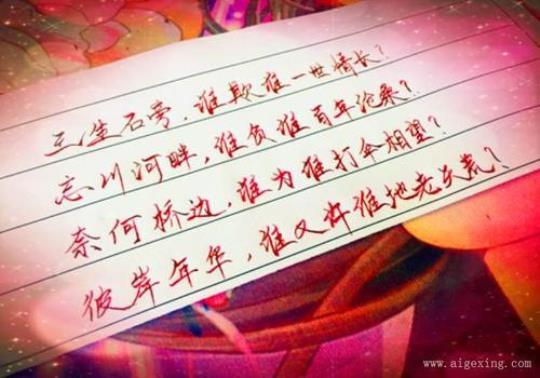 三生石旁，谁欺谁一世情长？
忘川河畔，谁负谁百年沧桑？
奈何桥边，谁为谁打伞相望？
彼岸年华，谁又许谁地老天荒？
www.aigexing.com